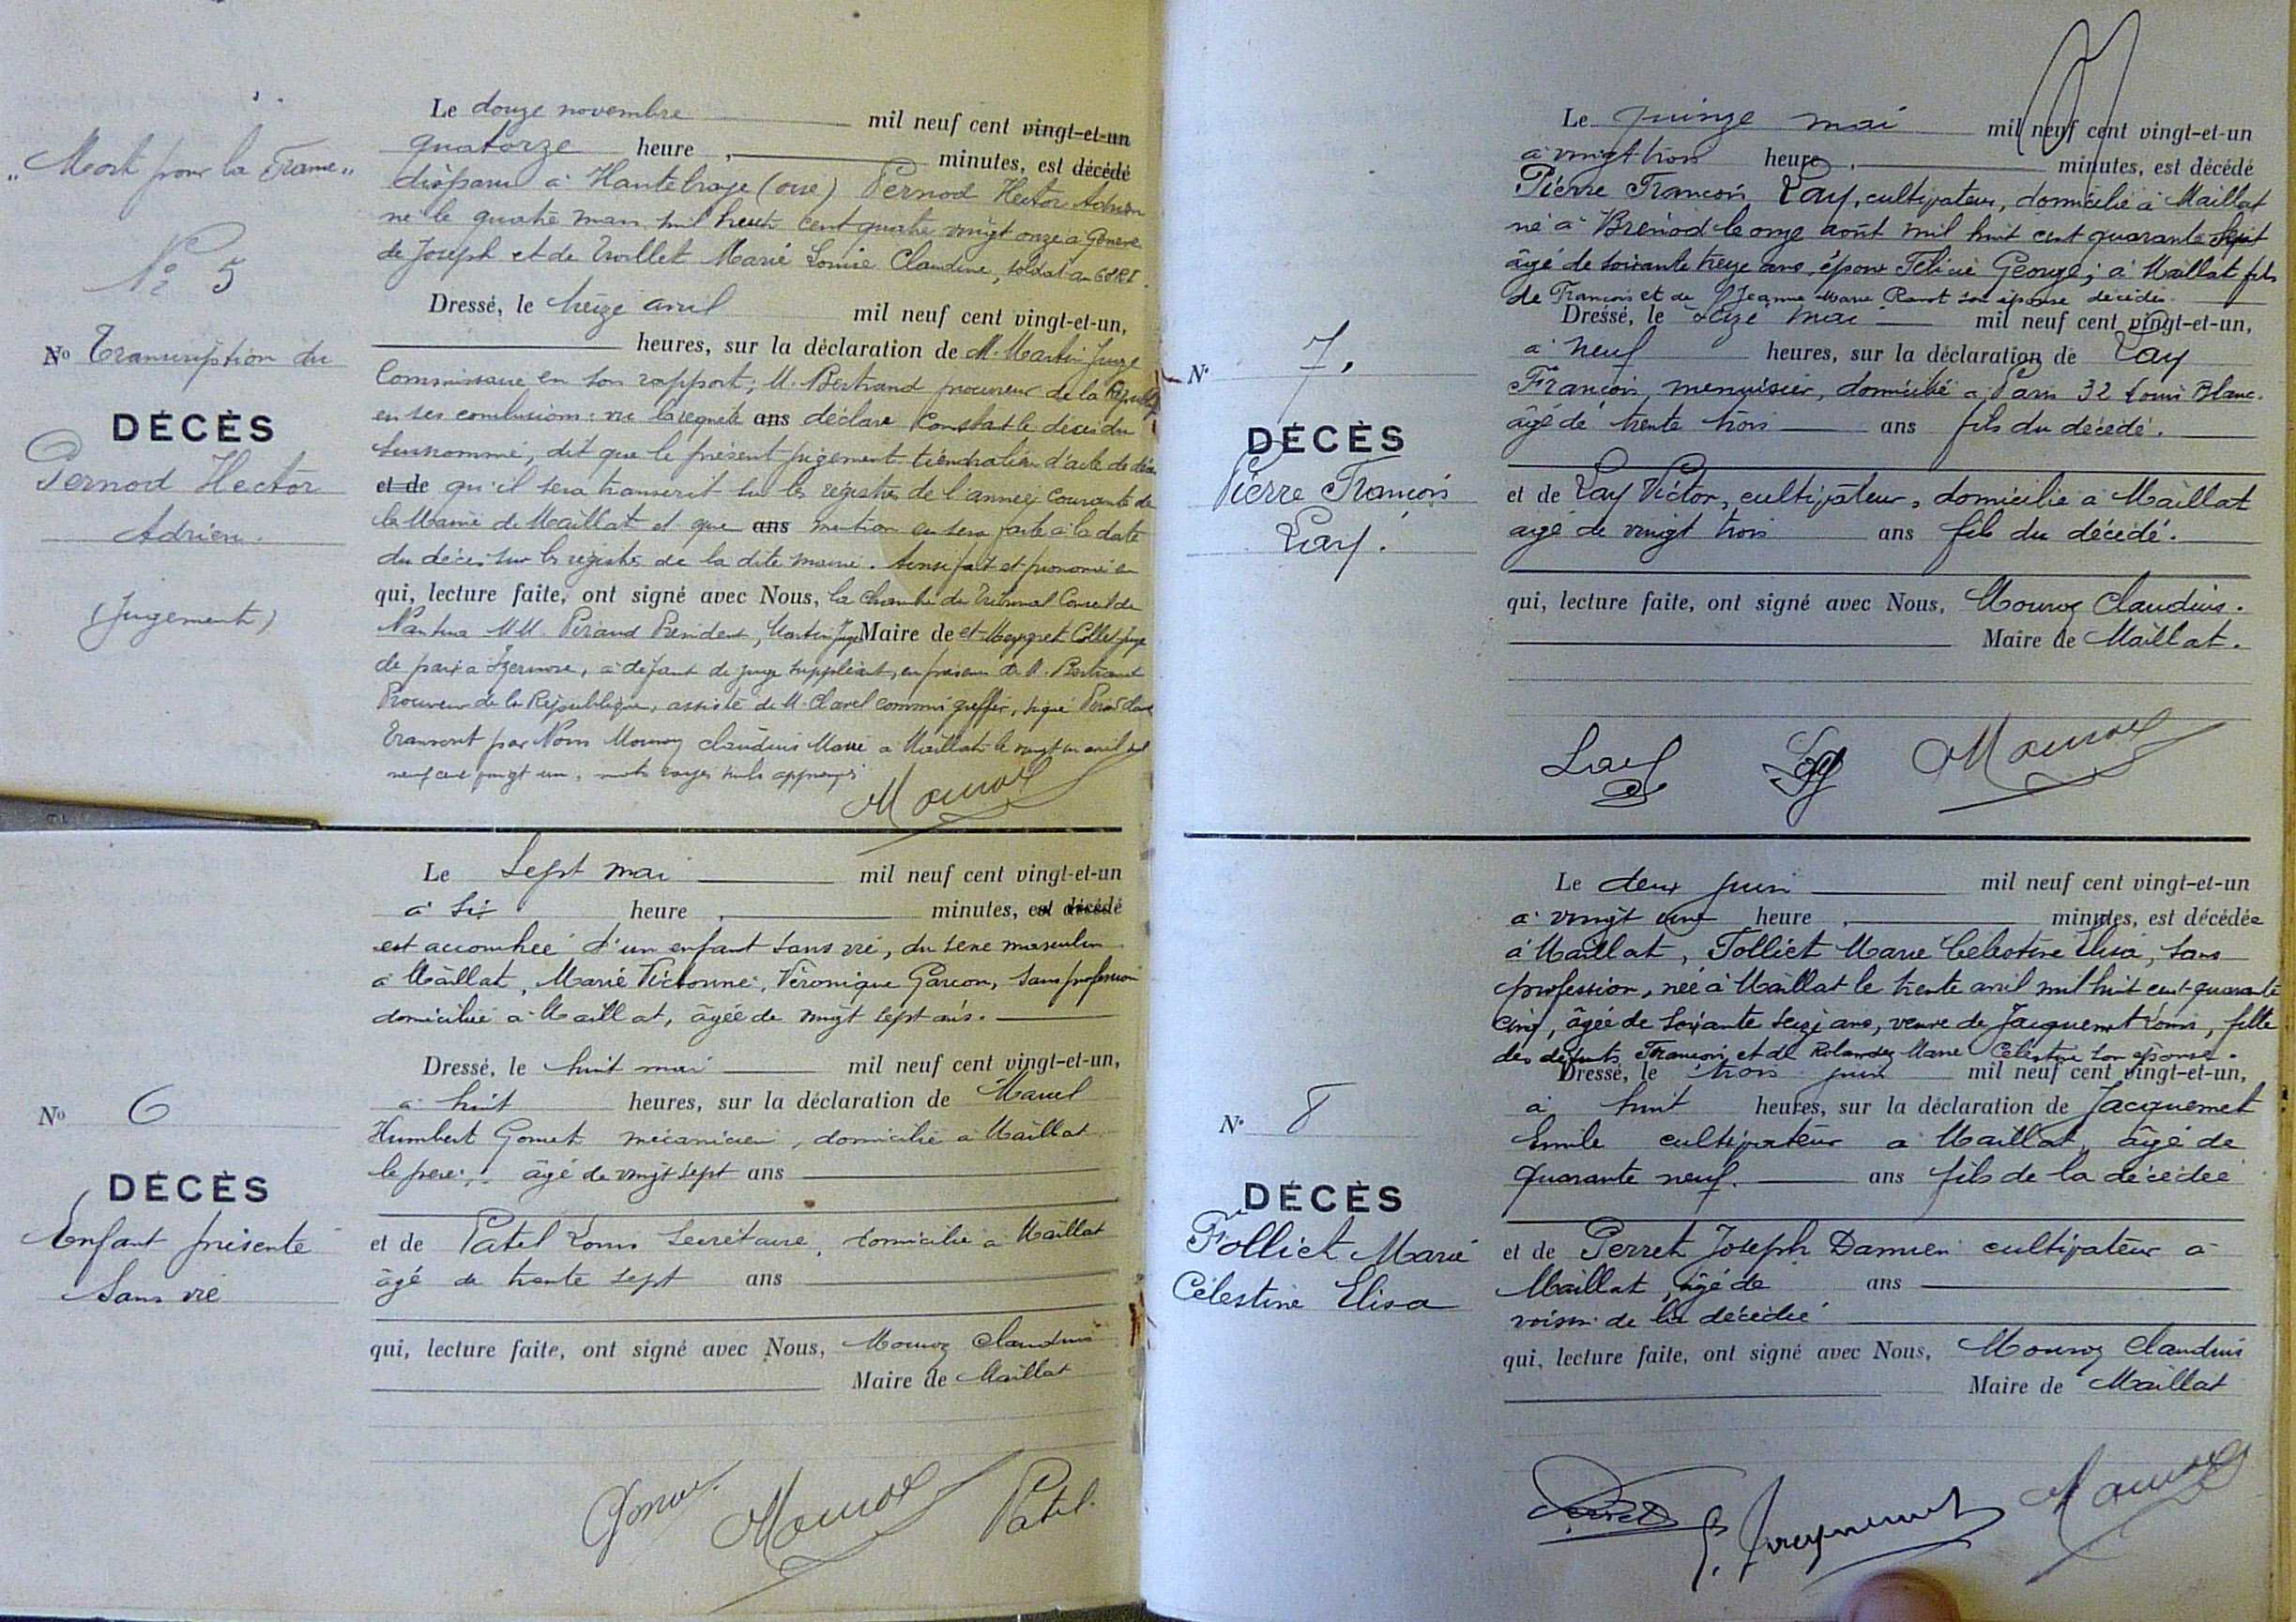 „ Mort pour la France „
N° 5
N° Transcription du
DÉCÈS
Pernod Hector
Adrien.
(Jugement)
Le douze novembre mil neuf cent vingt-et-un
quatorze heure , minutes, est décédé
disparu à Hautebraye (oise) Pernod Hector Adrien
né le quatre mars mil huit cent quatre vingt onze à Genève
de Joseph et de Marie Louise Claudine, soldat au 60 RI.
Dressé, le treize avril mil neuf cent vingt-et-un,
heures, sur la déclaration de M. Martin Juge
Commissaire en son rapport, M. Bertrand procureur de la Répub
en ses conclusions : vu la requête ans déclare Constant le décès du
susnommé, dit que le présent jugement tiendra lieu d'acte de décès
et de qu'il sera transcrit sur les registres de l'année courante de
la Mairie de Maillat et que ans mention en sera faite à la date
du décès sur les registres de la dite mairie. Ainsi fait et prononcé en
qui, lecture faite, ont signé avec Nous, la chambre du Tribunal Conseil de
Nantua MM. Peraud Président, Martin Juge Maire de et Meygret Collet Juge
de paix à Izernore, à défaut de juge suppléant, en présence de M. Bertrand
Procureur de la République, assisté de M. Clavel commis greffier, signé
Transcrit par Nous Mouroz Claudius Maire à Maillat le vingt un avril mil
neuf cent vingt un, mots rayés nuls approuvés
Mouroz
N° 6
DÉCÈS
Enfant présenté
Sans vie
Le Sept mai mil neuf cent vingt-et-un
à six heure , minutes, est décédé
est accouchée d'un enfant sans vie, du sexe masculin
à Maillat, Marie Victorine, Véronique Garcon, sans profession
domiciliée à Maillat, âgée de vingt sept ans.
Dressé, le huit mai mil neuf cent vingt-et-un,
à huit heures, sur la déclaration de Marcel
Humbert Gomet mécanicien, domicilié à Maillat
le père, âgé de vingt sept ans
et de Patel Louis Secrétaire, domicilié à Maillat
âgé de trente sept ans
qui, lecture faite, ont signé avec Nous, Mouroz Claudius
Maire de Maillat
Mouroz Patel
N° 7.
DÉCÈS
Pierre François
Lay.
Le quinze mai mil neuf cent vingt-et-un
à vingt trois heure , minutes, est décédé
Pierre François Lay, cultivateur, domicilié à Maillat
né à Brénod le onze août mil huit cent quarante Sept
âgé de soixante treize ans, époux Félicie George, à Maillat fils
de François et de Jeanne Marie Ravot son épouse décédés.
Dressé, le Seize mai mil neuf cent vingt-et-un,
à neuf heures, sur la déclaration de Lay
François, menuisier, domicilié à Paris 32 Louis Blanc.
âgé de trente trois ans fils du décédé.
et de Lay Victor, cultivateur, domicilié à Maillat
âgé de vingt trois ans fils du décédé.
qui, lecture faite, ont signé avec Nous, Mouroz Claudius.
Maire de Maillat.
Lay Lay Mouroz
N° 8
DÉCÈS
Folliet Marie
Célestine Elisa
Le deux juin mil neuf cent vingt-et-un
à vingt une heure , minutes, est décédée
à Maillat, Folliet Marie Célestine Elisa, sans
profession, née à Maillat le trente avril mil huit cent quarante
cinq, âgée de soixante seize ans, veuve de Jacquemet Louis, fille
des défunts François et de Rolandez Marie Célestine son épouse.
Dressé, le trois juin mil neuf cent vingt-et-un,
à huit heures, sur la déclaration de Jacquemet
Emile cultivateur à Maillat, âgé de
quarante neuf. ans fils de la décédée
et de Perret Joseph Damien cultivateur à
Maillat, âgé de ans
voisin de la décédée
qui, lecture faite, ont signé avec Nous, Mouroz Claudius
Maire de Maillat
Perret E. Jacquemet Mouroz